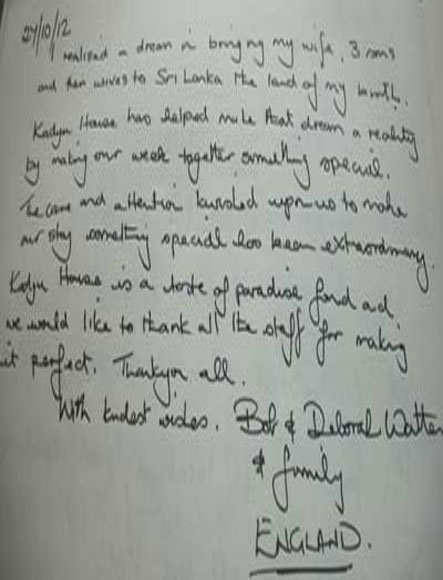 24/10/12
I realised a dream in bringing my wife, 3 sons
and their wives to Sri Lanka the land of my birth.
Kadju House has helped make that dream a reality
by making our week together something special.
The care and attention lavished upon us to make
our stay something special has been extraordinary.
Kadju House is a taste of paradise found and
we would like to thank all the staff for making
it perfect. Thankyou all.
With kindest wishes. Bob & Deborah
& family
ENGLAND.